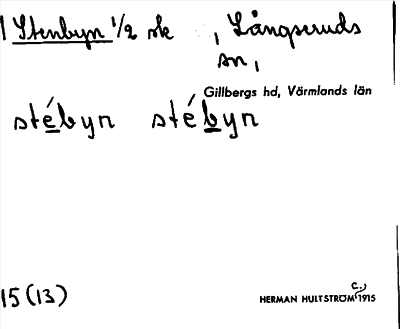 Stenbyn 1/2 sk , Långseruds
sn,
Gillbergs hd, Värmlands län
stébyn stébyn
15 (13)
HERMAN HULTSTRÖM C. 1915